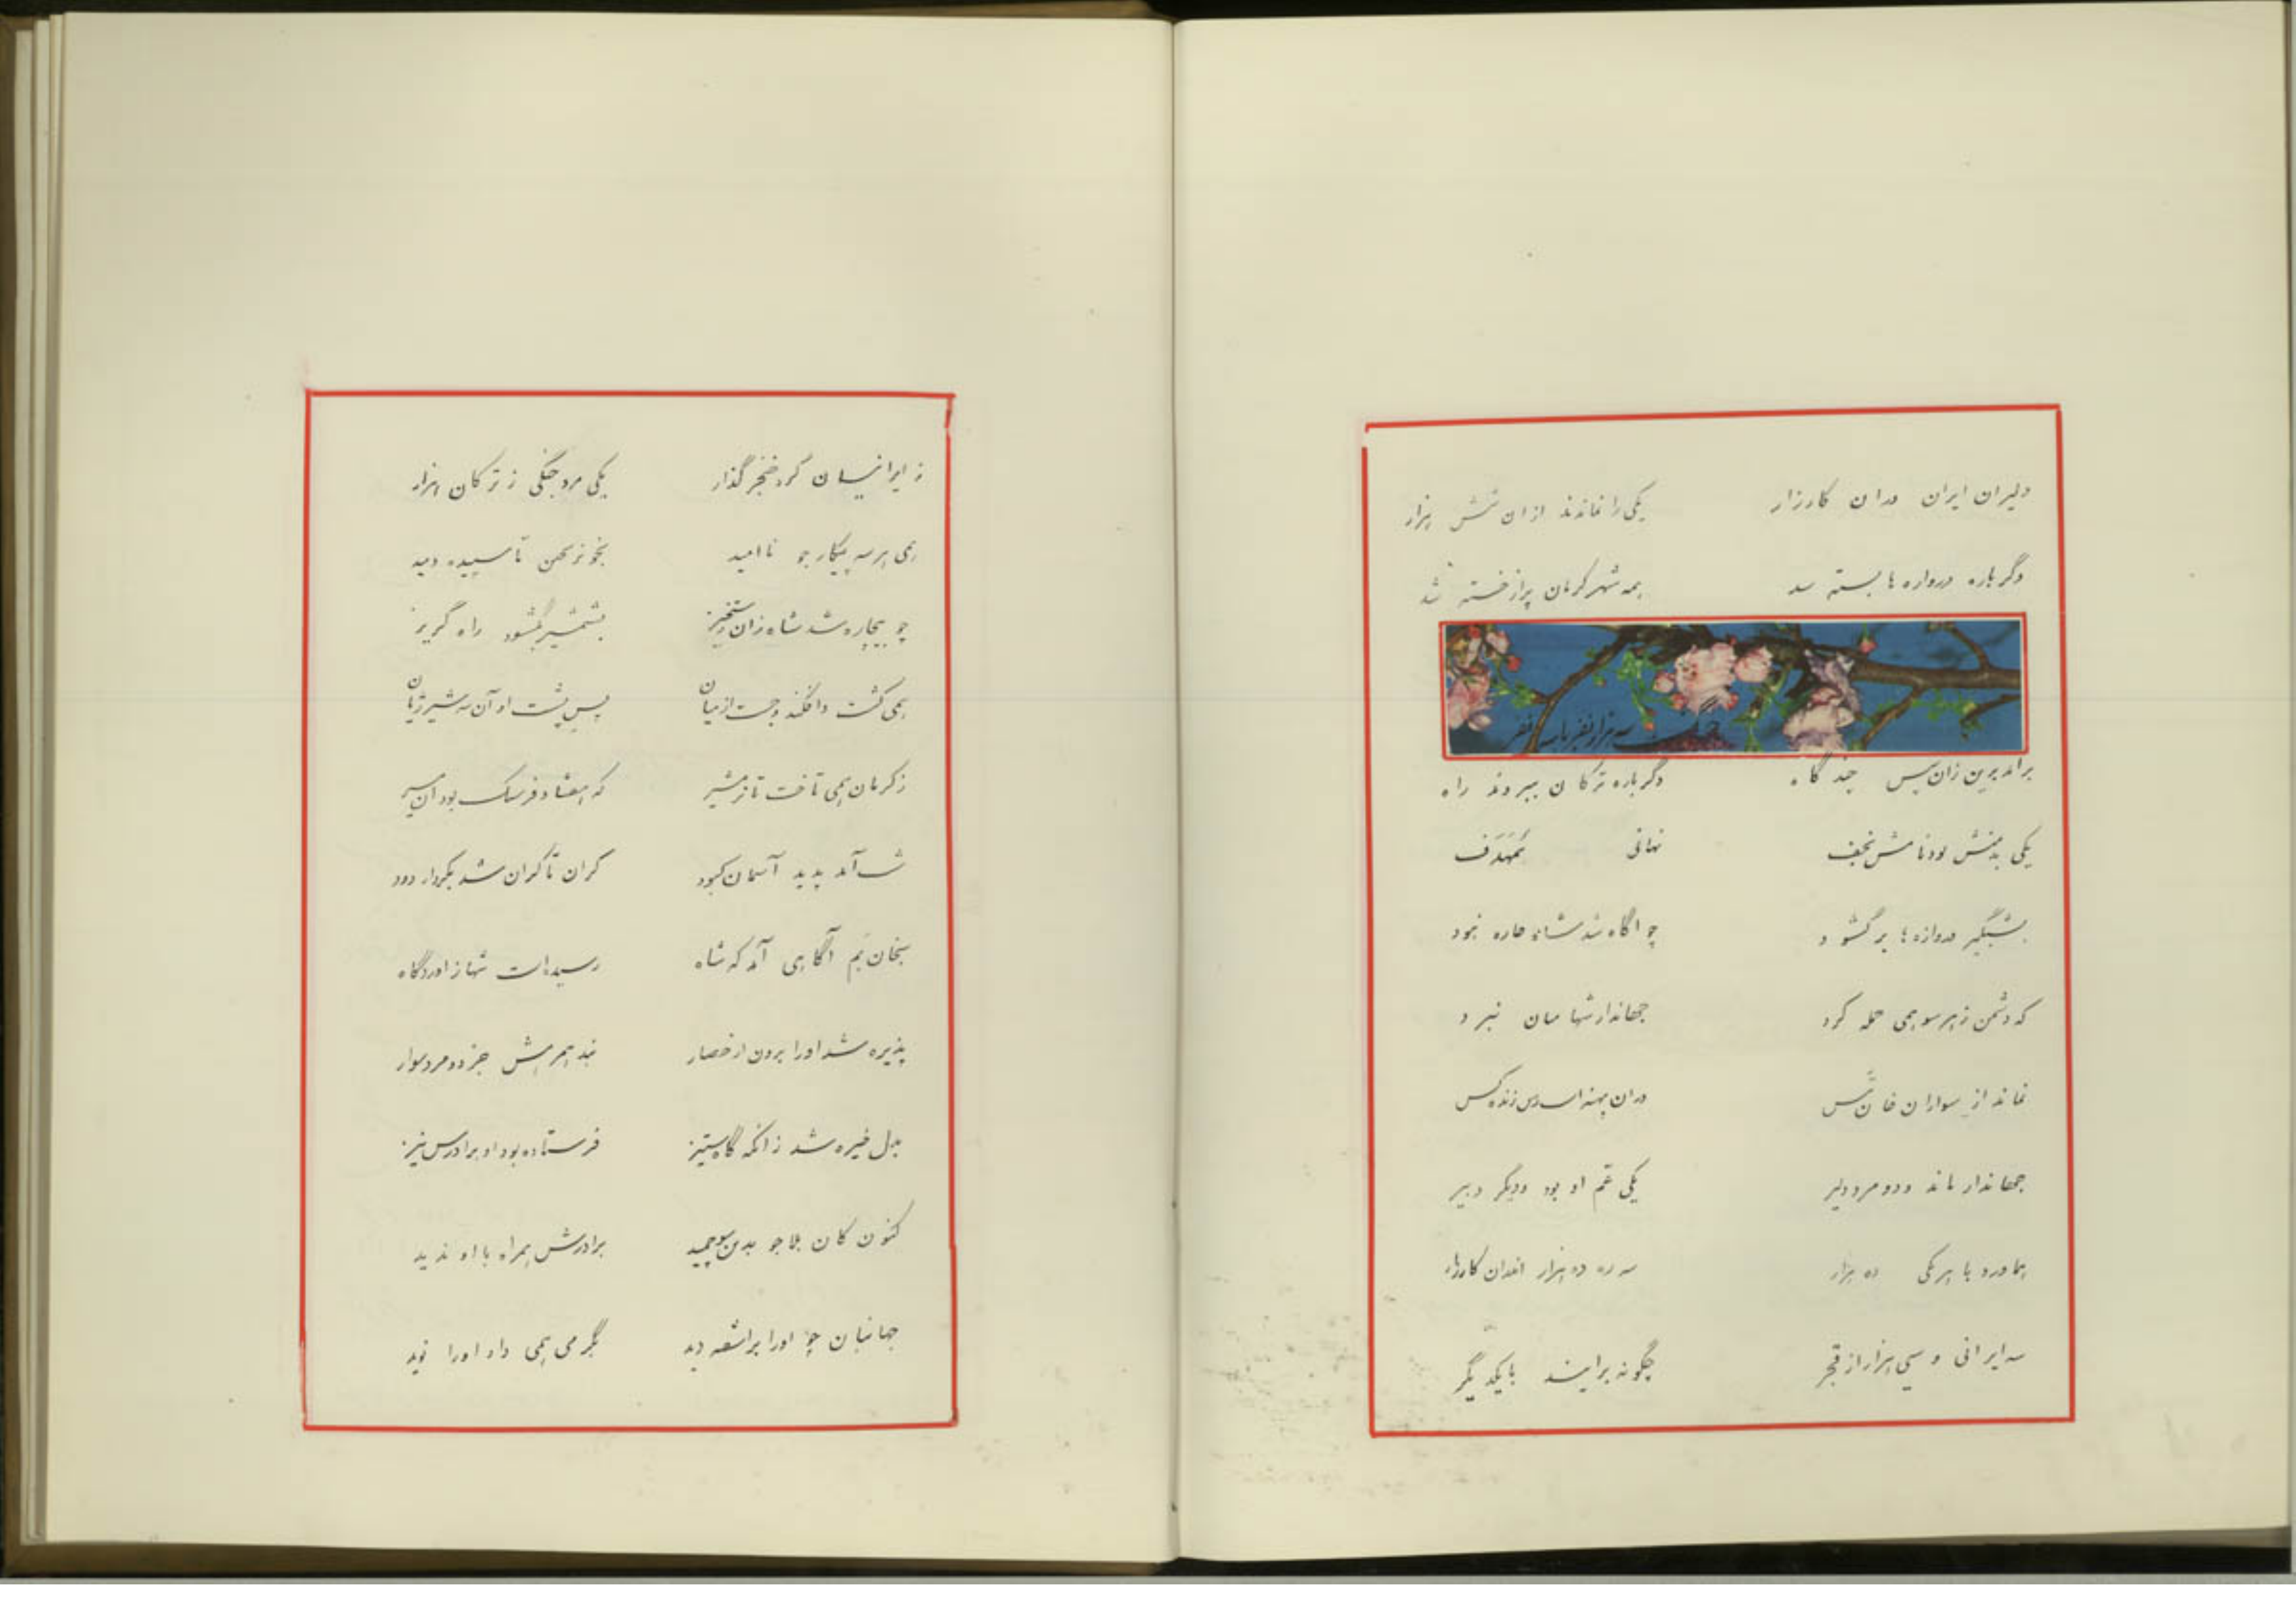 دلیران ایران دران کارزار یکی را نماندند ازان شش هزار
دگر باره دروازه ها بسته شد همه شهر کرمان پر از خسته شد
جنگ سه هزار نفر با سه نفر
برامد برین زان سپس چند گاه دگر باره ترکان ببردند راه
یکی بدمنش بود نامش نجف نهانی
بشبگیر دروازه ها برگشود چو اگاه شد شاه چاره نبود
که دشمن ز هر سو همی حمله کرد جهاندار تنها میان نبرد
نماند از سواران خان کس دران پهنه اسپرس زنده کس
جهاندار ماند و دو مرد دلیر یکی عم او بود و دیگر دبیر
هماورد با هر یکی ده هزار سه ره ده هزار اندران کارزار
سه ایرانی و سی هزار از قجر چگونه برایند با یکدیگر
ز ایرانیان گرد خنجر گذار یکی مرد جنگی ز ترکان هزار
همی هر سه پیکارجو ناامید تا سپیده دمید
چو بیچاره شد شاه زان رستخیز بشمشیر بگشود راه گریز
همی کشت و افکند و جست از میان پس پشت او آن سه شیر ژیان
ز کرمان همی تاخت تا نرمشیر که هفتاد فرسنگ بود آن مسیر
شب آمد پدید آسمان کبود کران تا کران شد بکردار دود
بخان بم آگاهی آمد که شاه رسیدست تنها ز اوردگاه
پذیره شد او را برون از حصار بند همرهش جز دو مرد سوار
بدل خیره شد زانکه گاه ستیز فرستاده بود او برادرش نیز
کنون کان بلاجو بدین سو چمید برادرش همراه با او ندید
جهانبان چو او را براشفته دید بگرمی همی داد او را نوید